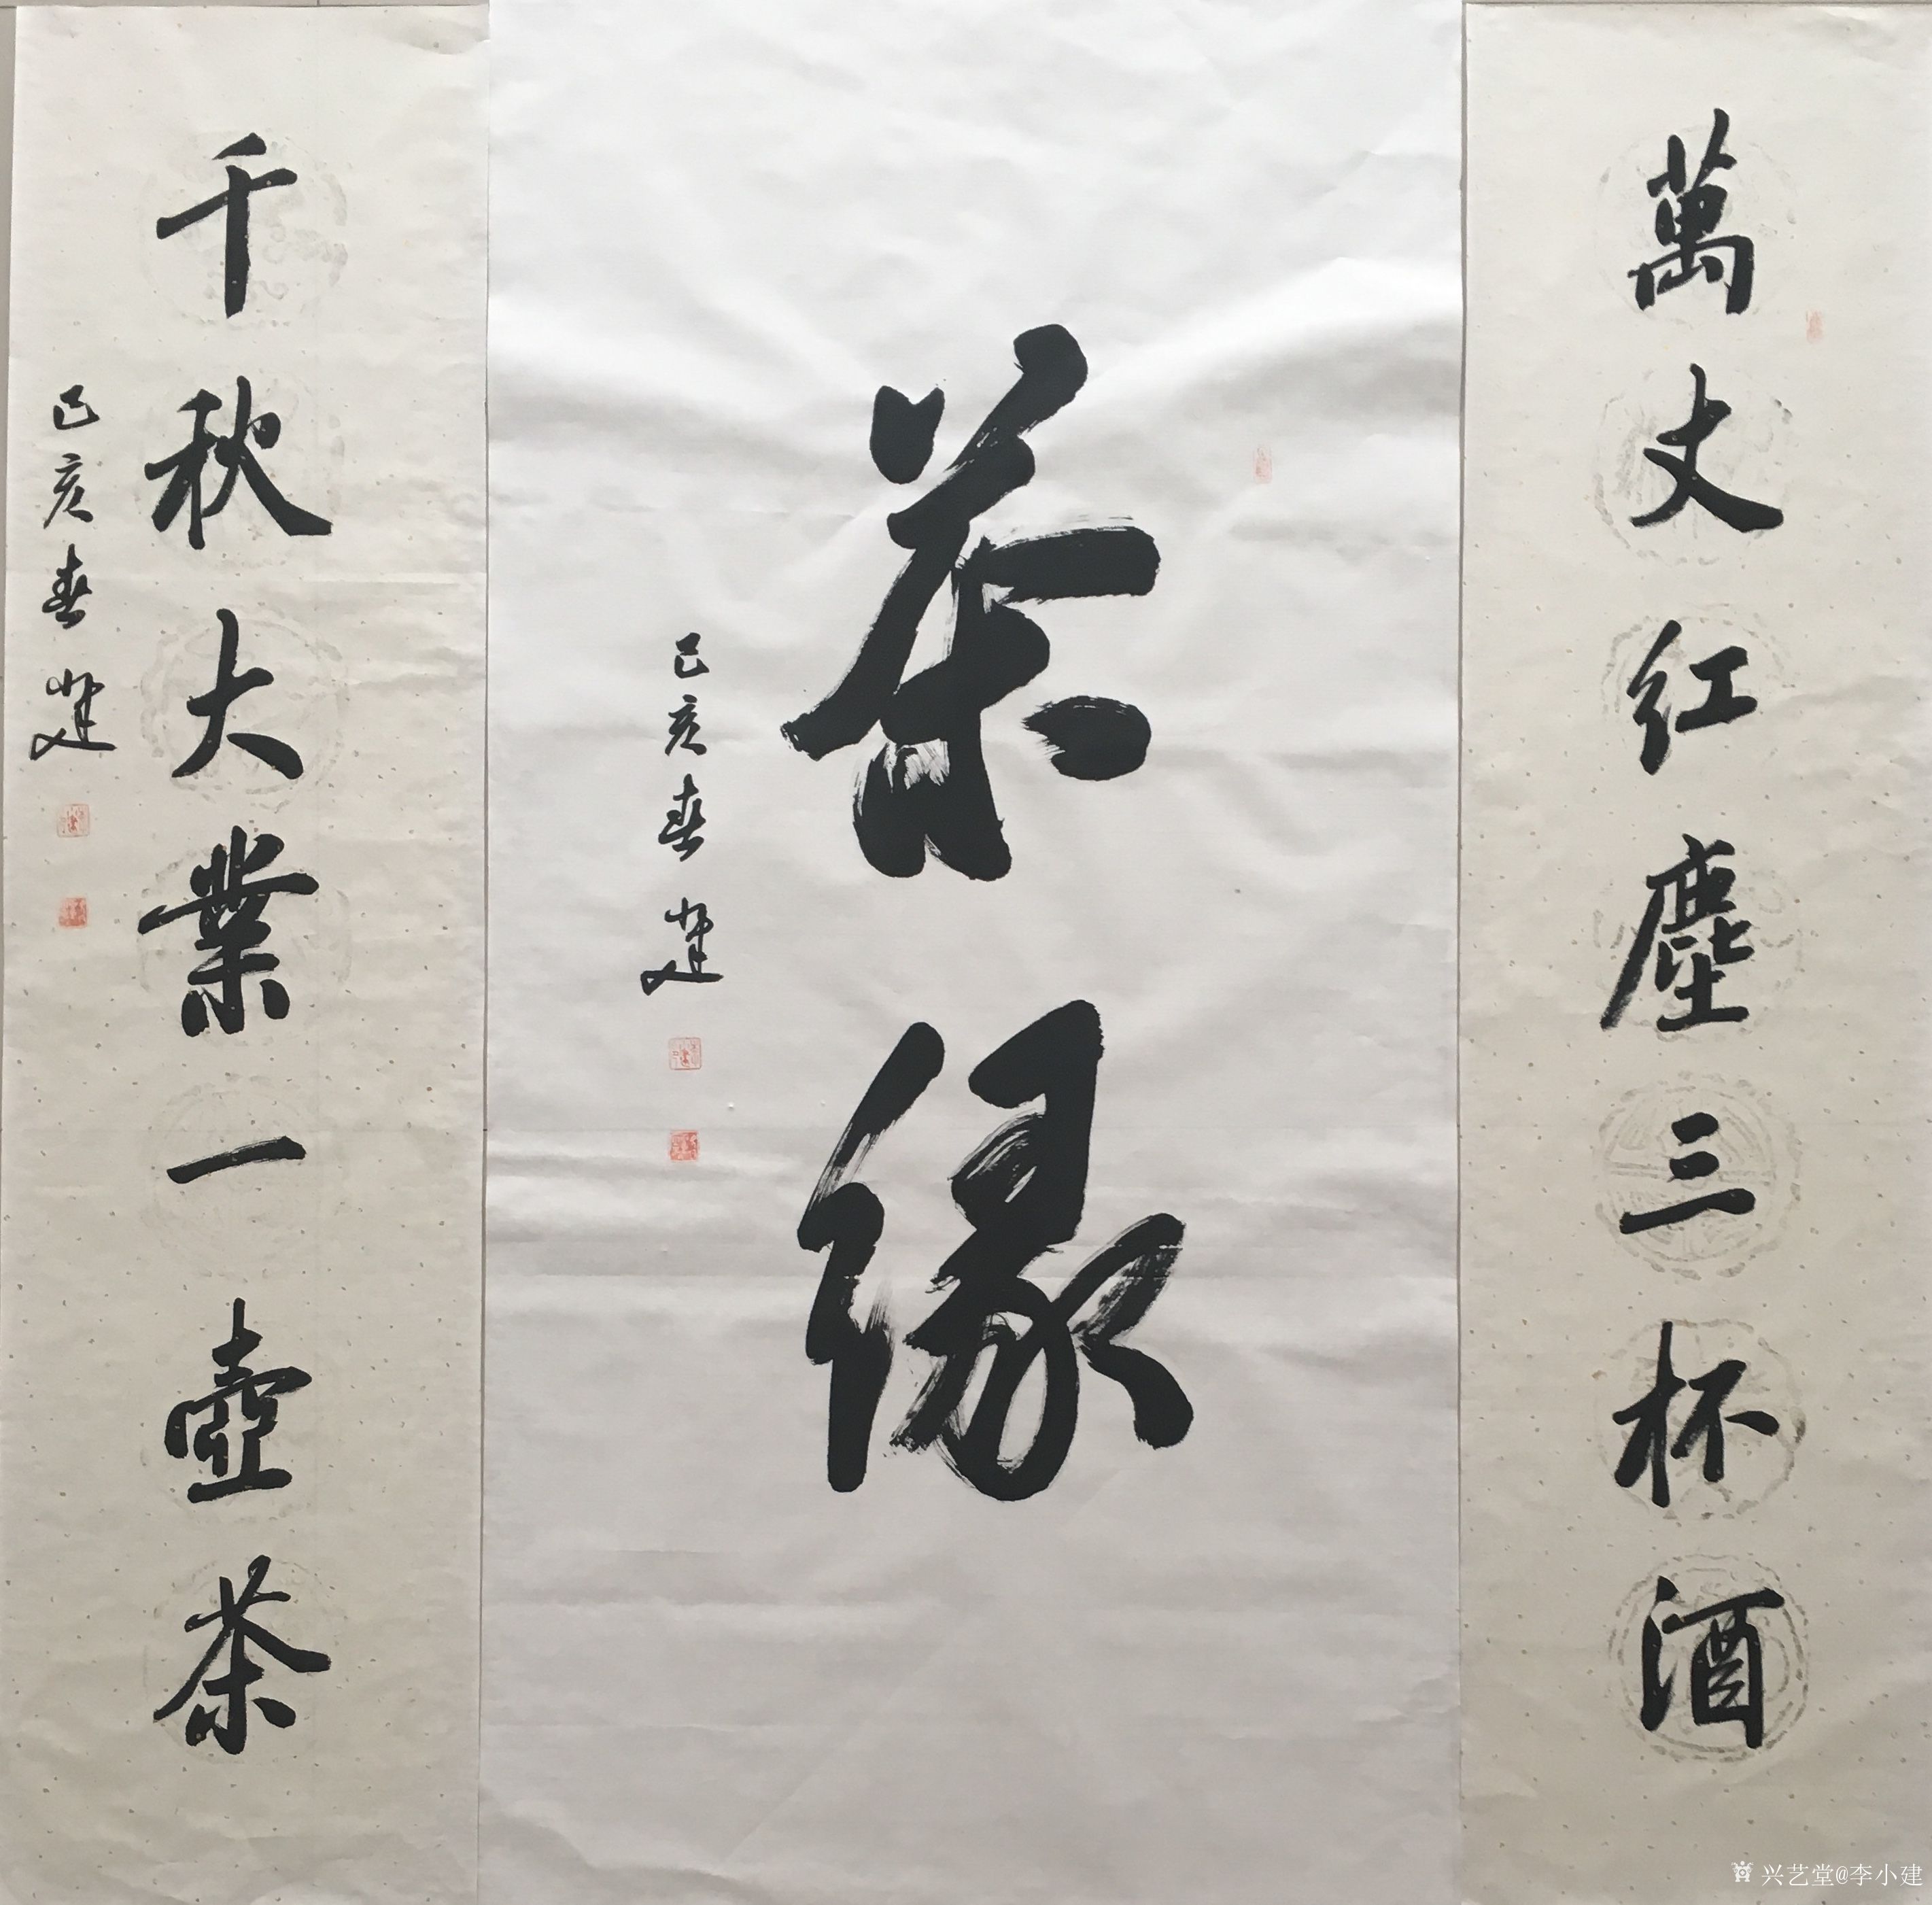 萬丈红塵三杯酒
茶缘
己亥春 小建
千秋大業一壺茶
己亥春 小建
兴艺堂@李小建